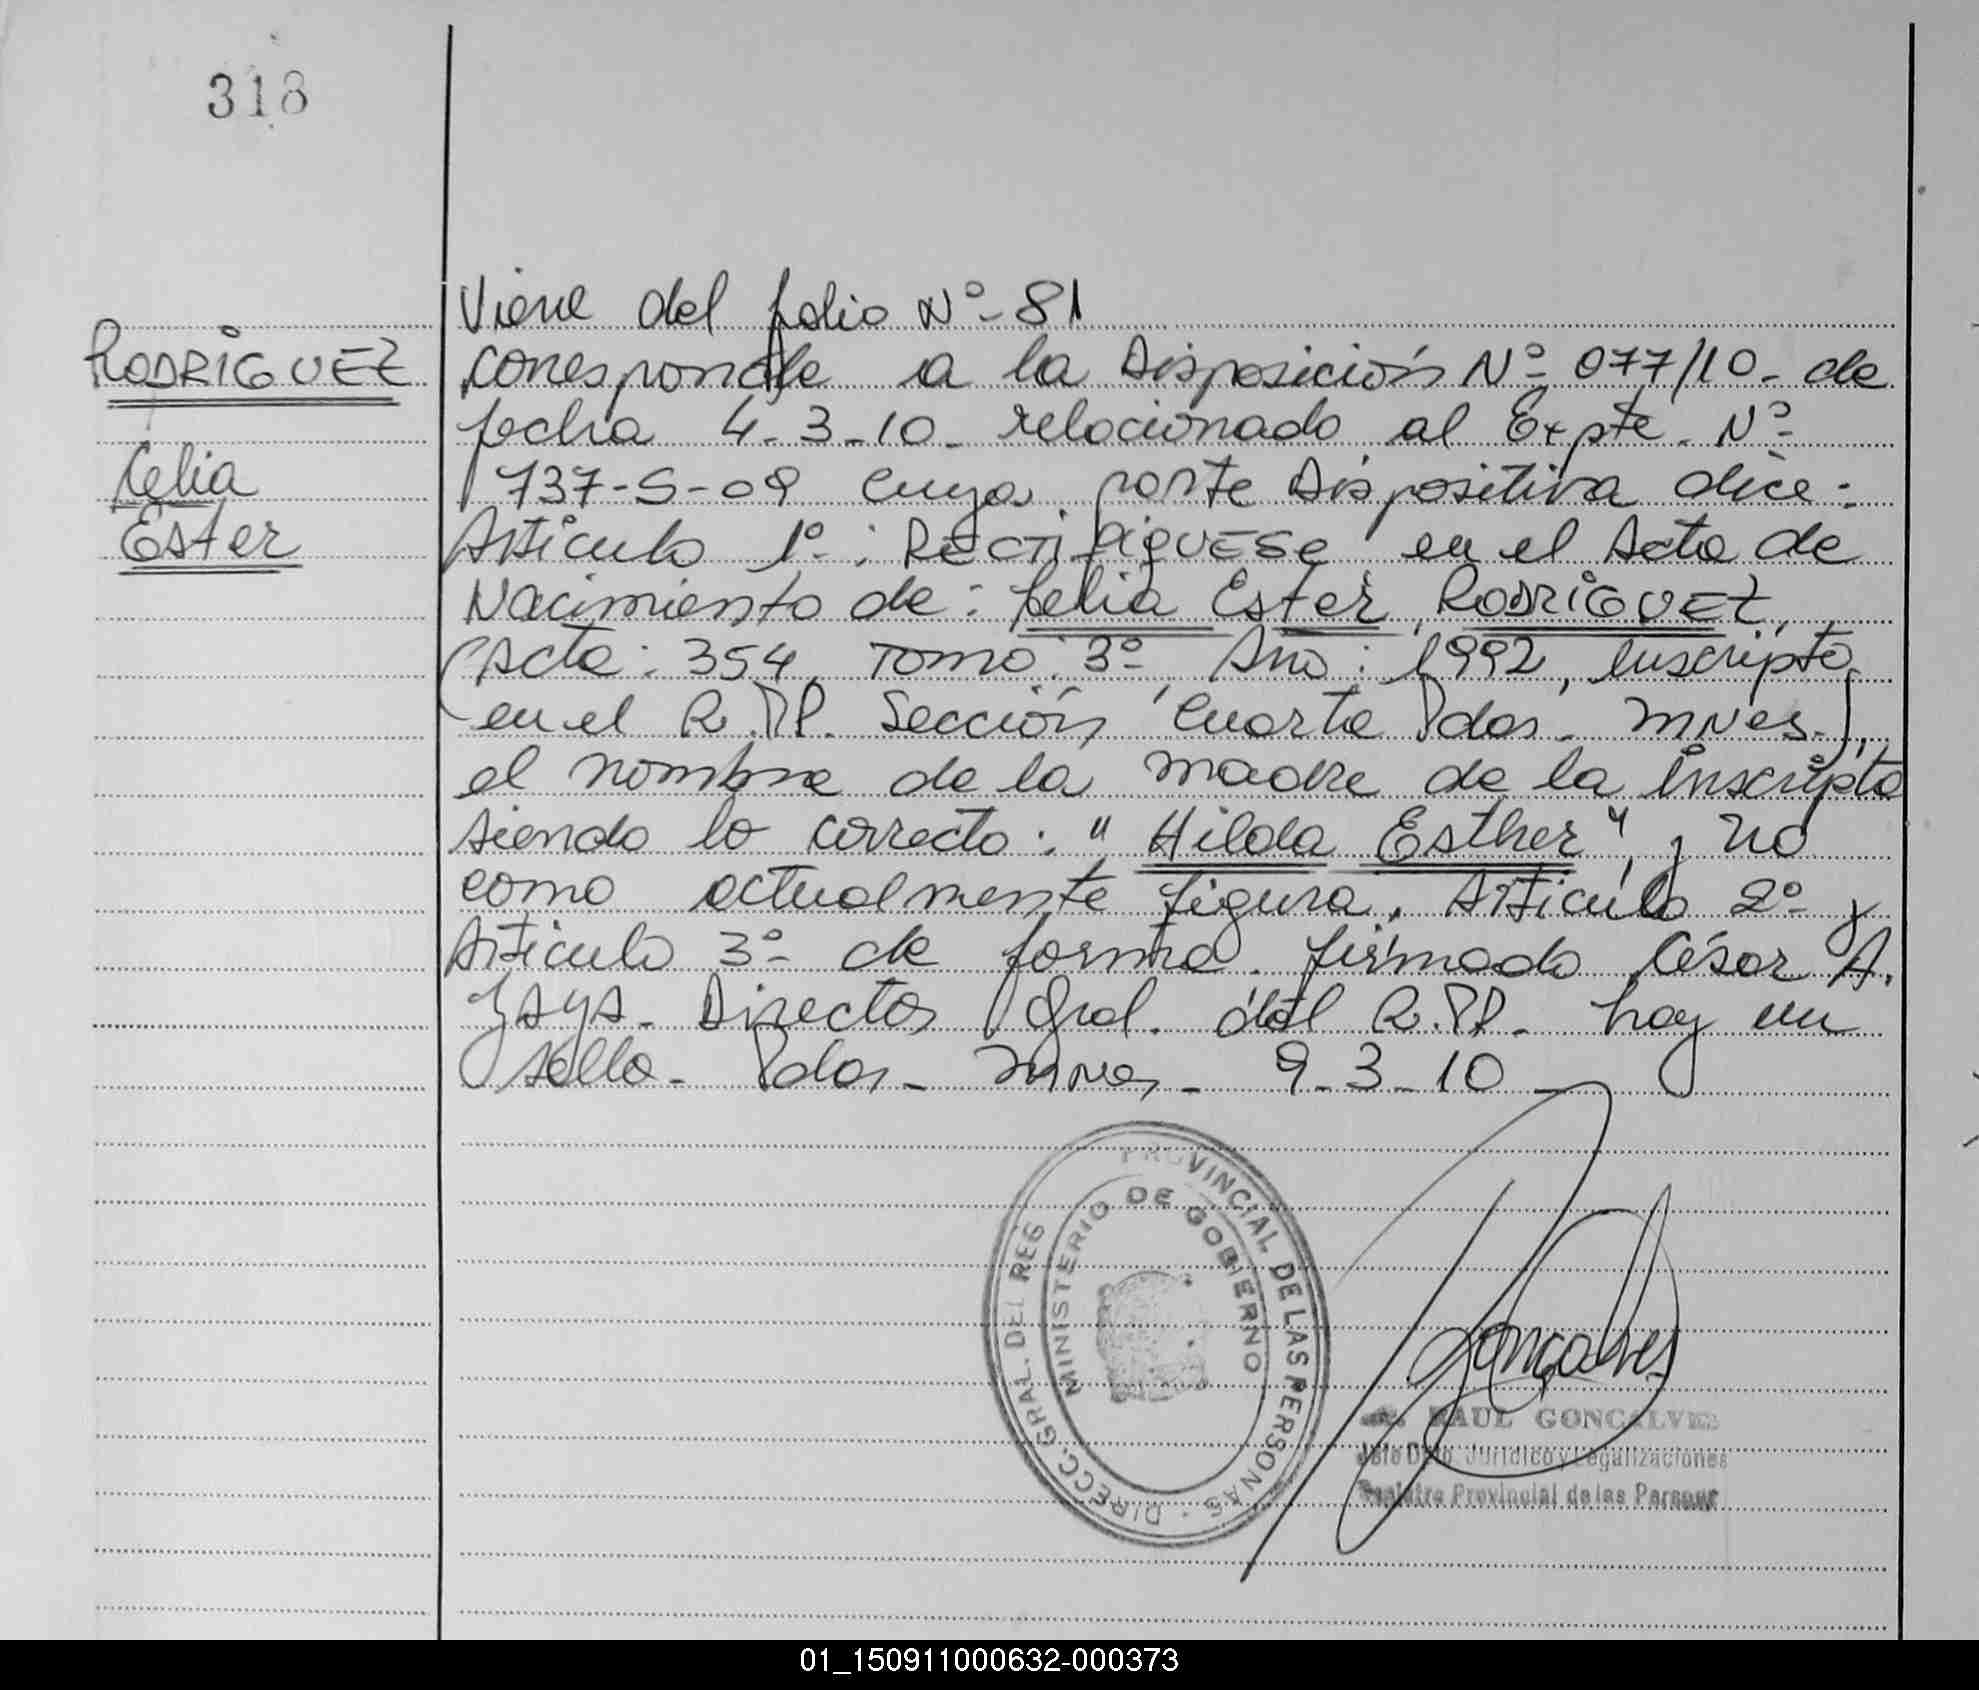 318
RODRIGUEZ
Celia
Ester
Viene del folio Nº-81
corresponde a la Disposición Nº 077/10- de
fecha 4-3-10- relacionado al Expte. Nº
737-S-09 cuya parte dispositiva dice:
Articulo 1º: Rectifiquese en el Acta de
Nacimiento de: Celia Ester RODRIGUEZ,
(Acta: 354, Tomo: 3º, Año: 1992, inscripta
en el R.P.P. Sección Cuarta Pdas. Mnes.),
el nombre de la madre de la inscripta
siendo lo correcto: "Hilda Esther", y no
como actualmente figura. Articulo 2º y
Articulo 3º de forma. firmado César A.
Gral. del R.P.P. hay un
sello- Pdas- Mnes- 9-3-10-
DIRECC. GRAL. DEL REG PROVINCIAL DE LAS PERSONAS
MINISTERIO DE GOBIERNO
Goncalves
RAUL GONCALVES
Jefe Dpto. Jurídico y Legalizaciones
Registro Provincial de las Personas
01_150911000632-000373